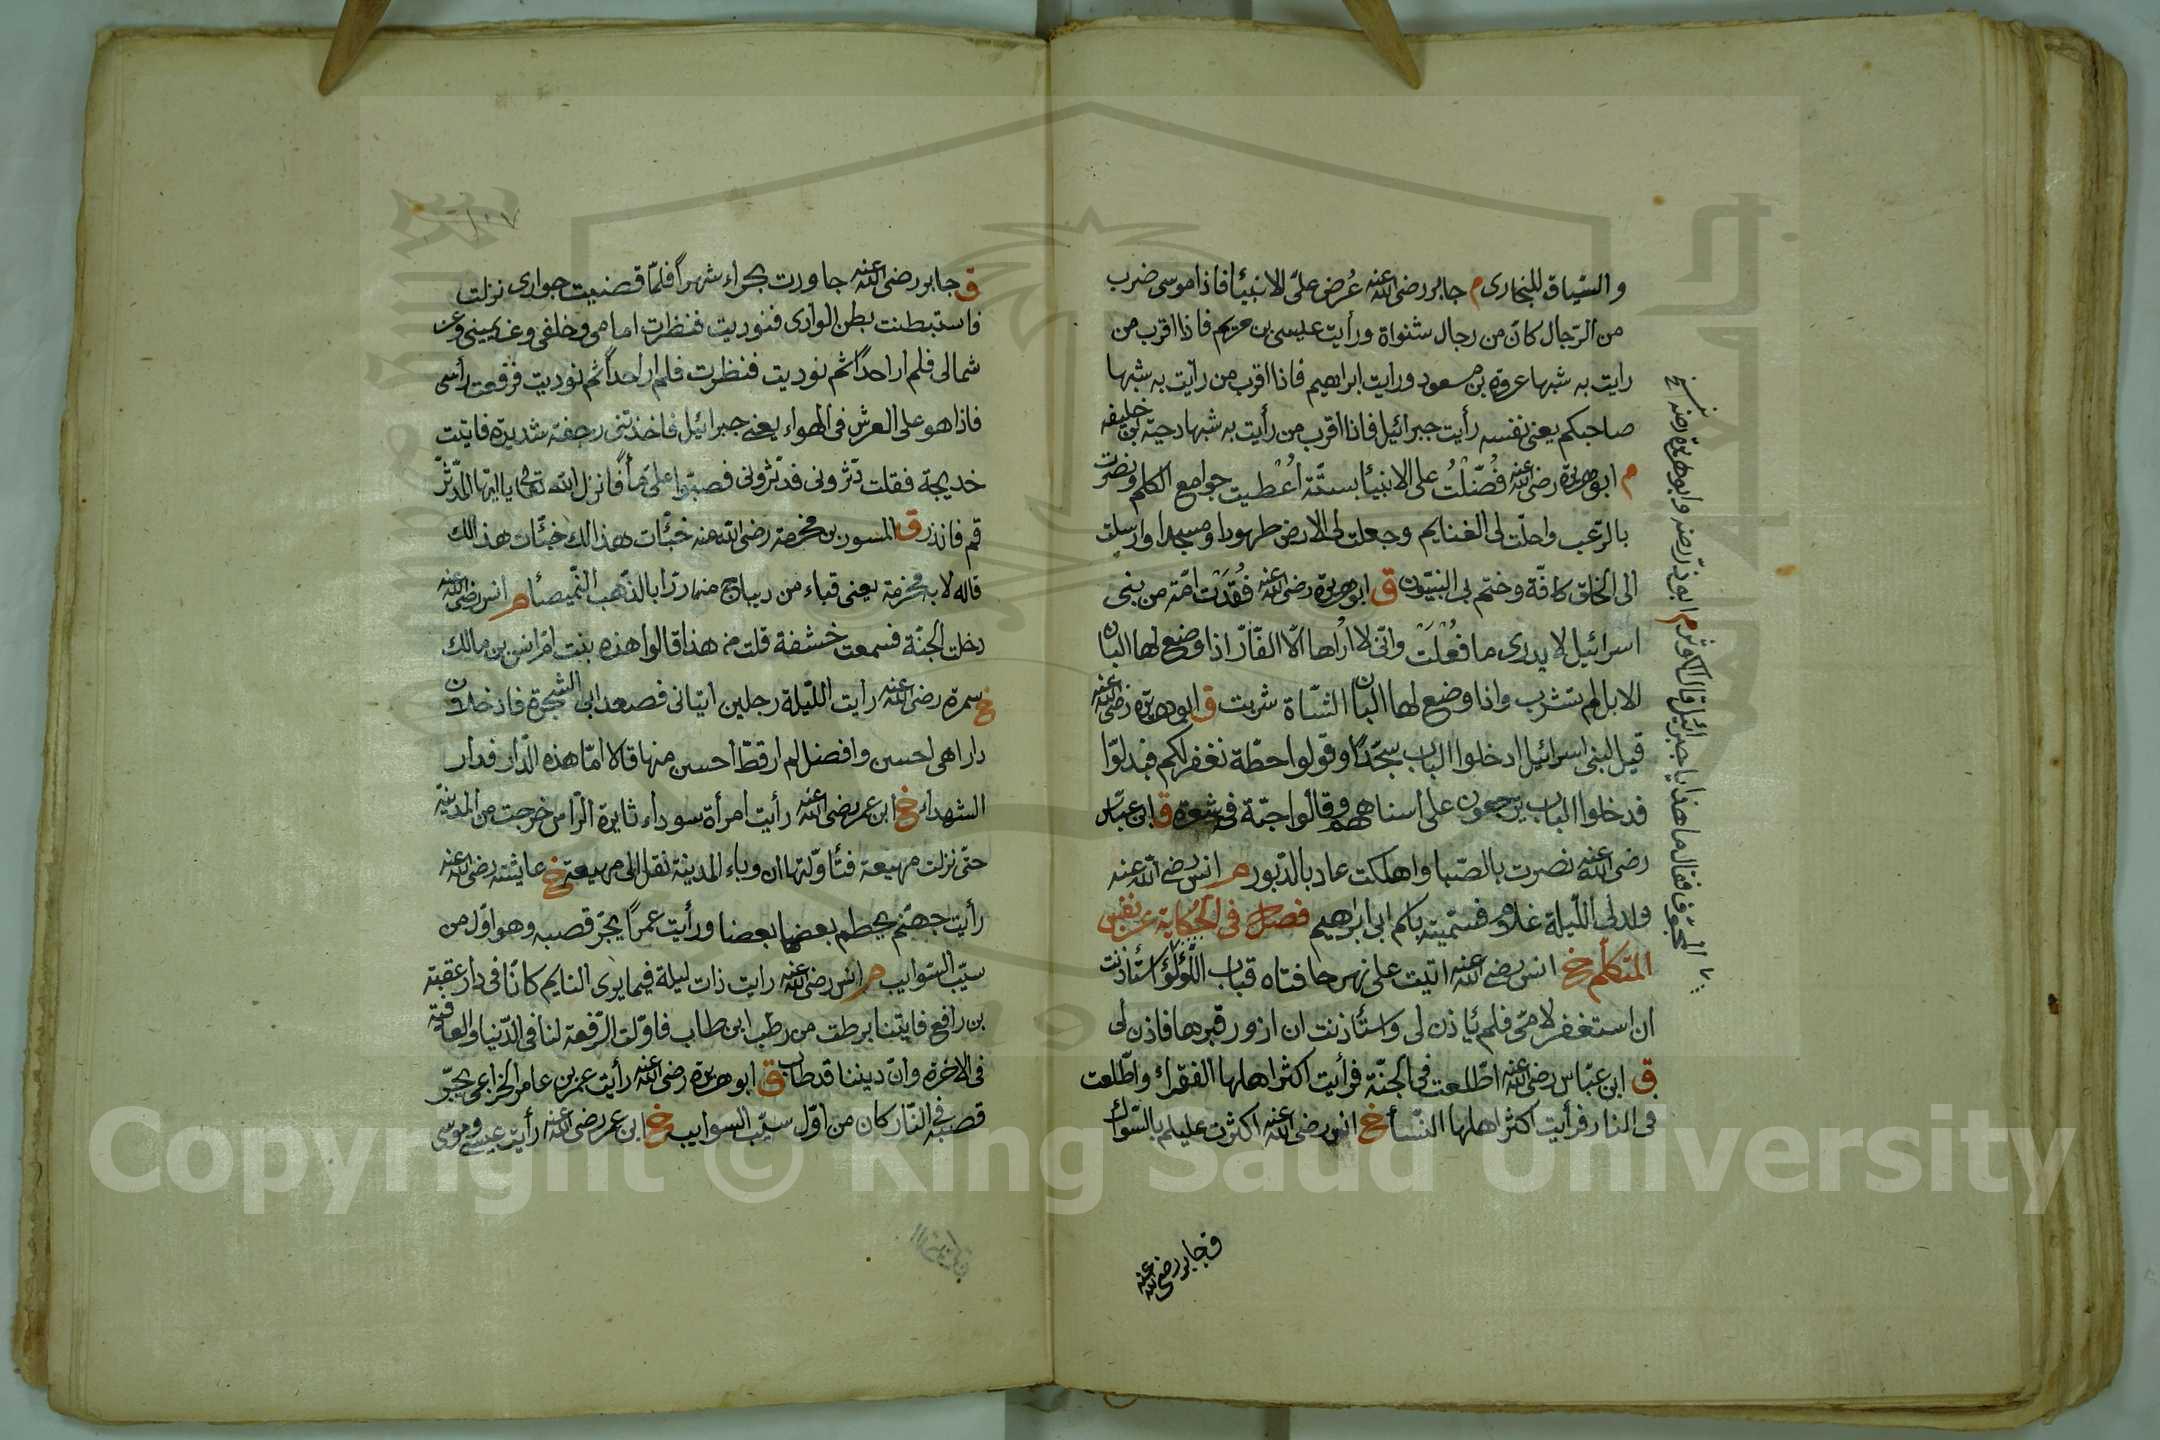 والسّياق للبخارى م جابر رضى الله عنه عُرض علىّ الانبيا فاذا موسى ضرب
من الرّجال كانّ من رجال شنواة ورأيت عيسى بن مريم فاذا اقرب من
رايت به شبها عروة بن مسعود ورايت ابراهيم فاذا اقرب من رأيت به شبها
صاحبكم يعنى نفسه رأيت جبرائيل فاذا اقرب من رأيت به شبها دحية بن خليفه
م ابوهريرة رضى الله عنه فُضّلْتُ على الانبيا بستّة اُعْطيت جوامع الكلم ونصرت
بالرّعب واحلّت لى الغنايم وجعلت لى الارض طهورا ومسجدا وارسلت
الى الخلق كافّة وختم بى النبيّون ق ابوهريرة رضى الله عنه فُقدَتْ امّة من بنى
اسرائيل لا يدرى ما فعُلَتْ وانّى لا اُراها الّا الفأر اذا وضع لها البان
الابل لم تشرب واذا وضع لها البان الشّاة شربت ق ابوهريرة رضى الله عنه
قيل لبنى اسرائيل ادخلوا الباب سجّدًا وقولوا حطّة نغفر لكم فبدلوّا
فدخلوا الباب يزحفون على استاههم وقالوا حبّة فى شعرة ق ابن عبّاس
رضى الله عنه نصرت بالصّبا واهلكت عاد بالدّبور م انس رضى الله عنه
ولد لى اللّيلة غلام فسمّيته باسم ابى ابراهيم فصل فى الحكاية عن نفس
المتكلّم خ انس رضى الله عنه اتيت على نهر حافتاه قباب اللّؤلؤ استأذنت
ان استغفر لامّى فلم ياذن لى واستأذنت ان ازور قبرها فاذن لى
ق ابن عبّاس رضى الله عنه اطّلعت فى الجنّة فرأيت اكثر اهلها الفقراء واطّلعت
فى النار فرأيت اكثر اهلها النّسأ خ انس رضى الله عنه اكثرت عليكم بالسّواك
ق جابر رضى الله عنه
ق جابر رضى الله عنه جاورت بحراء شهراً فلمّا قضيت جوارى نزلت
فاستبطنت بطن الوادى فنوديت فنظرت امامى وخلفى وعن يمينى وعن
شمالى فلم ار احداً ثم نوديت فنظرت فلم ار احداً ثم نوديت فرفعت رأسى
فاذا هو على العرش فى الهواء يعنى جبرائيل فاخذتنى رجفة شديدة فايتيت
خديجة فقلت دثّرونى فدثّرونى فصبّوا علىّ مأً فانزل الله تعالى يا ايّها المدّثّر
قم فانذر ق المسور بن مخرمة رضى الله عنه خبّأت هذا لك خبّأت هذا لك
قاله لابه مخرمة يعنى قباء من ديباج مزررا بالذّهب م انس رضى الله عنه
دخلت الجنّة فسمعت خشفة قلت من هذا قالوا هذه بنت ام انس بن مالك
خ سمرة رضى الله عنه رأيت اللّيلة رجلين اتيانى فصعدا بى الشجرة فادخلانى
دارا هى احسن وافضل لم ار قطّ احسن منها قالا امّا هذه الدّار فدار
الشهداء خ ابن عمر رضى الله عنه رأيت امرأة سوداء ثايرة الرّاس خرجت من المدينة
حتى نزلت مهيعة فتأوّلتها ان وباء المدينة نقل الى مهيعة خ عايشة رضى الله عنه
رأيت جهنّم يحطم بعضها بعضا ورأيت عمراً يجرّ قصبه وهو اوّل من
سيّب السّوايب م انس رضى الله عنه رايت ذات ليلة فيما يرى النايم كانّا فى دار عقبة
بن رافع فايتنا برطب من رطب ابن طاب فاوّلت الرّفعة لنا فى الدّنيا والعاقبة
فى الاخرة وانّ ديننا قد طاب ق ابوهريرة رضى الله عنه رأيت عمر بن عامر الخزاعى يجرّ
قصبه فى النّار كان من اوّل سيّب السوايب خ ابن عمر رضى الله عنه رأيت عيسى وموسى
Copyright © King Saud University